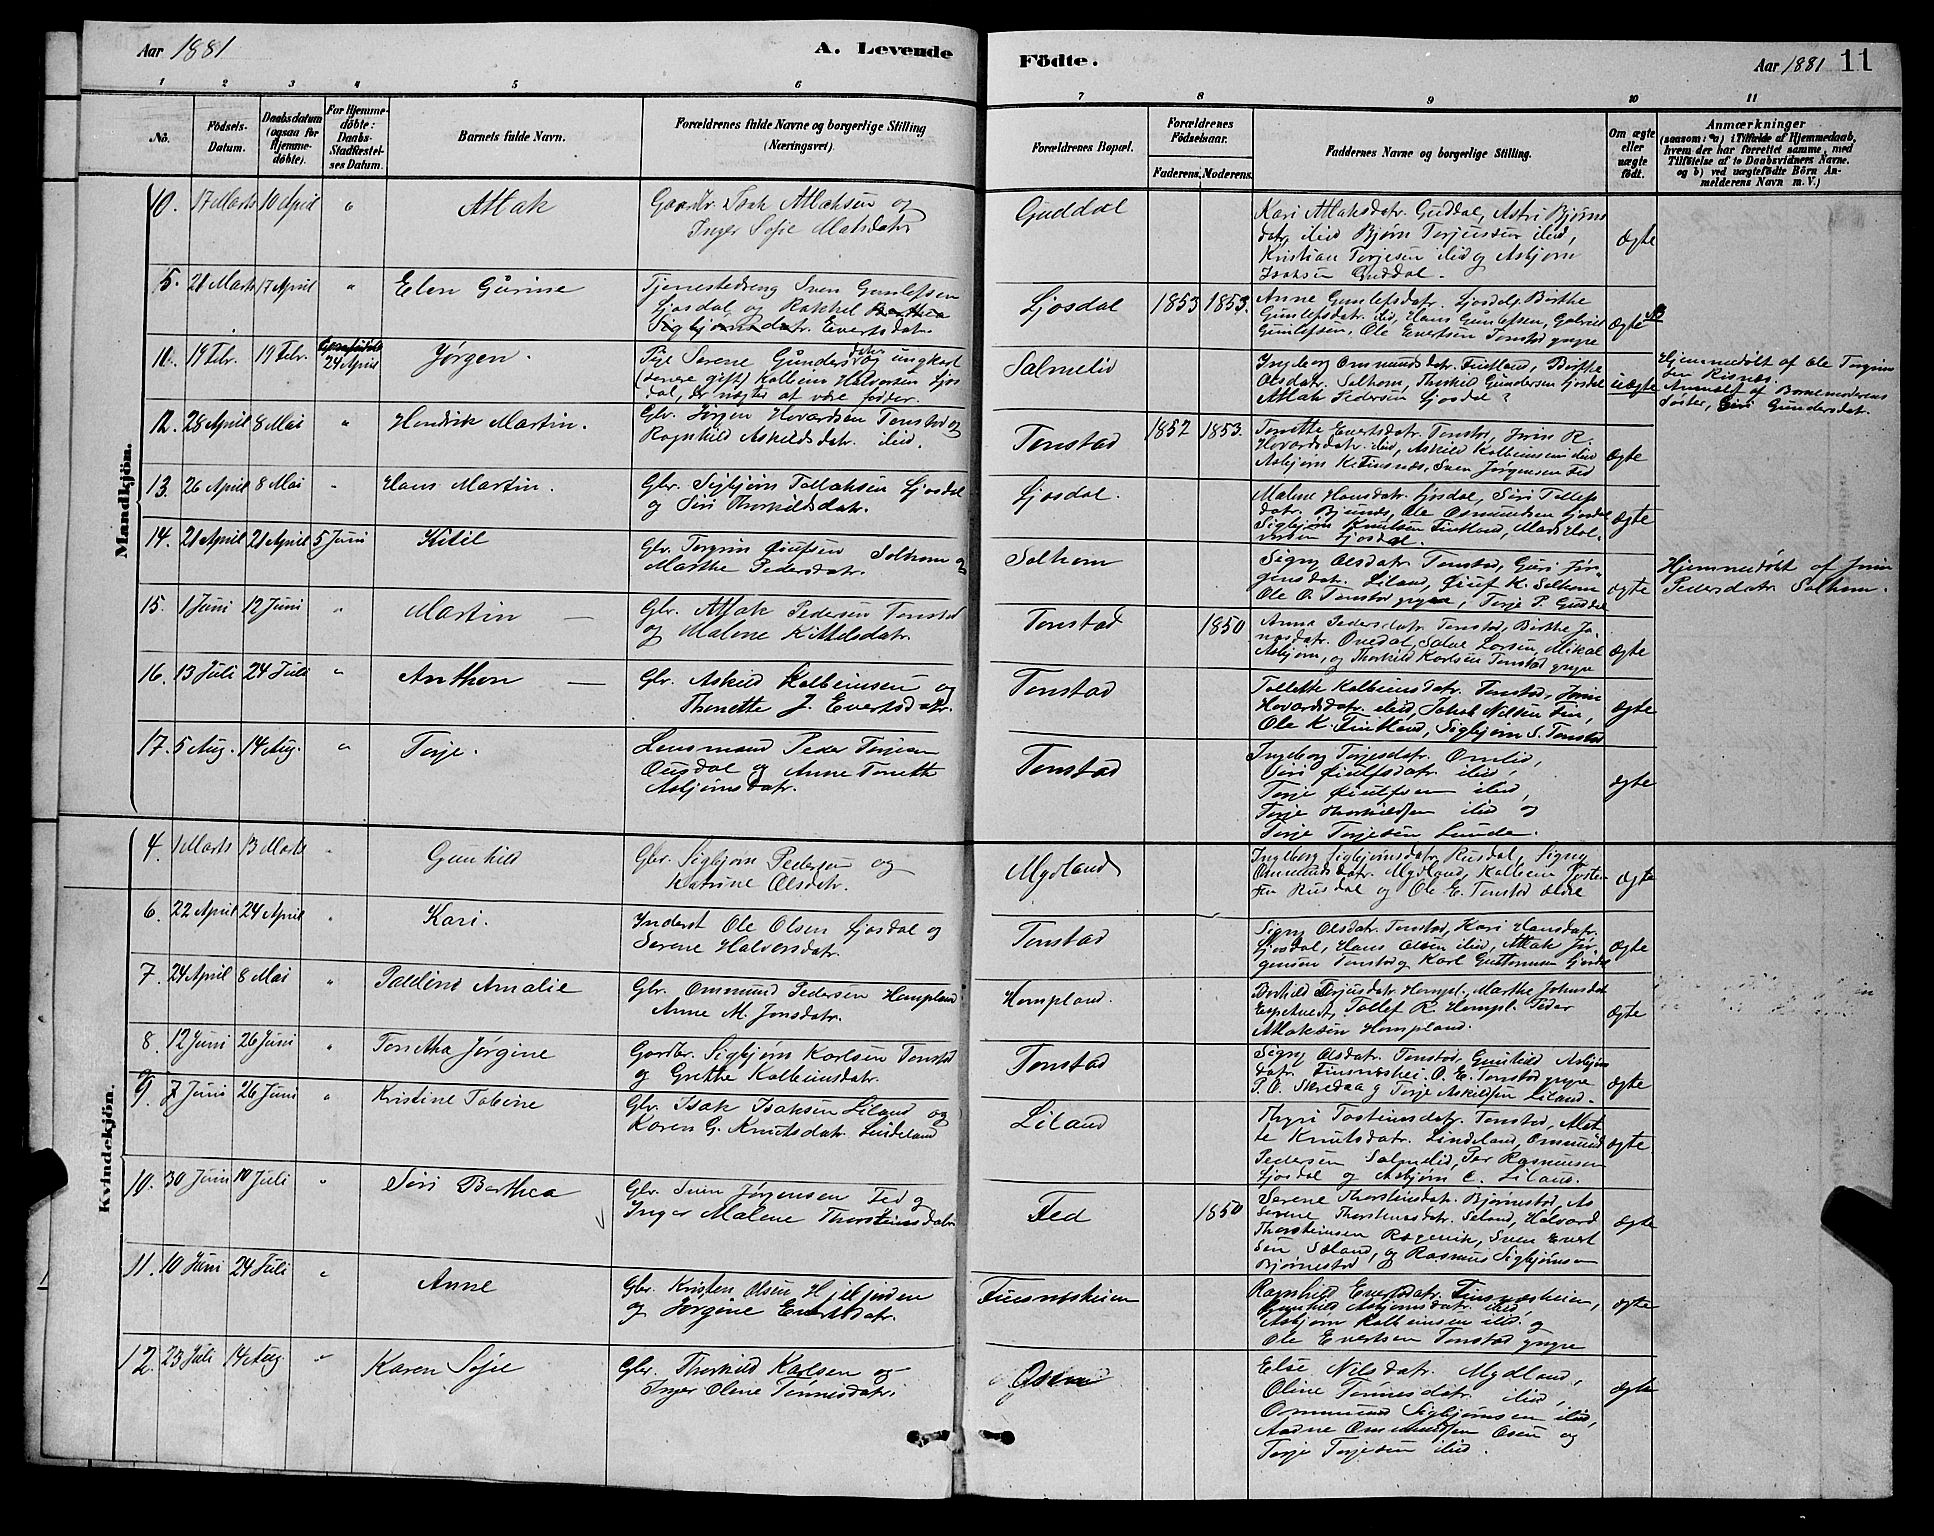 Aar 1881
A. Levende Födte.
Aar 1881 11
1 2 3 4 5 6 7 8 9 10 11
No.
Födsels-Datum.
Daabsdatum (ogsaa for Hjemmedöbte).
For Hjemmedöbte: Daabs-Stadfæstelses Datum.
Barnets fulde Navn.
Forældrenes fulde Navne og borgerlige Stilling (Næringsvei).
Forældrenes Bopæl.
Forældrenes Födselsaar.
Faderens. Moderens.
Faddernes Navne og borgerlige Stilling.
Om ægte eller uægte födt.
Anmærkninger
(saasom: a) i Tilfælde af Hjemmedaab, hvem der har forrettet samme, med Tilföielse af to Daabsvidners Navne. og b) ved uægtefödte Börn Anmelderens Navn m. V.)
Mandkjön.
10. 17 Marts 10 April " Atlak
Gaardbr. Isak Atlaksen og
Inger Sofie Matsdatr.
Guddal
Kari Atlaksdatr. Guddal, Astri Bjørns
datr. ibid Bjørn Terjussen ibid,
Kristian Torjesen ibid og Asbjørn
Isaksen Guddal.
Ægte
5. 21 Marts 17 April " Elen Gurine
Tjenestedreng Sven Gunlefsen
Ljosdal og Rakkel Berthea
Sigbjørnsdatr. Evertsdatr.
Ljosdal 1853 1853.
Anne Gunlefsdatr. Ljosdal, Birthe
Gunlefsdatr. ibid, Hans Gunlefsen, Gabriel
Gunlefsen, Ole Evertsen Tonstad yngre
Ægte
11. 19 Febr. 19 Febr. 24 April Jørgen.
Pige Serene Gundersdatr og ungkarl
(senere gift) Kolbein Halvorsen Ljos
dal, der nægter at være fader.
Salmelid
Ingeborg Ommundsdatr. Fintland, Birthe
Olsdatr. Solhom, Thorkild Gundersen Ljosdal
Atlak Pedersen Ljosdal?
uægte
Hjemmedøbt af Ole Torgrim
sen Risnæs.
Anmeldt af Barnemoderens
Søster, Siri Gundersdatr.
12. 28 April 8 Mai " Hendrik Martin.
Gbr. Jørgen Hovardsen Tonstad og
Ragnhild Askildsdatr. ibid.
Tonstad 1857 1853.
Tonette Evertsdatr. Tonstad, Jorin R.
Hovardsdatr. ibid, Askild Kolbeinsen ibid
Asbjørn K. Finsnæs, Sven Jørgensen Fed
Ægte
13. 26 April 8 Mai " Hans Martin.
Gbr. Sigbjørn Tollaksen Ljosdal
og Siri Thorkildsdatr.
Ljosdal.
Malene Hansdatr. Ljosdal, Siri Tollefs
datr. Bjunes, Ole Osmundsen Ljosdal
Sigbjørn Knutsen Fintland, Mads Hal-
vorsen Ljosdal.
Ægte
14. 21 April 21 April 5 Juni Kitil
Gbr. Torgrim Øiufsen Solhom og
Marthe Pedersdatr.
Solhom
Signy Olsdatr. Tonstad, Guri Jør-
gensdatr. Liland, Øiuf K. Solhom
Ole O. Tonstad yngre, Torje P. Guddal
Ægte
Hjemmedøbt af Jorin
Pedersdatr. Solhom.
15. 1 Juni 12 Juni " Martin
Gbr. Atlak Pedersen Tonstad
og Malene Kittelsdatr.
Tonstad 1850
Anna Pedersdatr. Tonstad, Birthe Jo-
nasdatr. Ovedal, Salve Larsen, Mikal
Asbjørn, og Thorkild Karlsen Tonstad yngre
Ægte
16. 13 Juli 24 Juli " Anthon
Gbr. Askild Kolbeinsen og
Thonette J. Evertsdatr.
Tonstad
Tollette Kolbeinsdatr. Tonstad, Jorin
Hovardsdatr. ibid, Jakob Nilsen Fin,
Ole K. Fintland, Sigbjørn S. Tonstad
Ægte
17. 5 Aug. 14 Aug. " Torje.
Lensmand Peder Torjesen
Ousdal og Anne Tonette
Asbjørnsdatr.
Tonstad
Ingeborg Torjesdatr. Omlid,
Siri Øiulfsdatr. ibid,
Torje Øiulfsen ibid,
Torje Thorkildsen ibid og
Torje Torjesen Lunde.
Ægte
Kvindekjön.
4. 1 Marts 13 Marts " Gunhild
Gbr. Sigbjørn Pedersen og
Katrine Olsdatr.
Mydland
Ingeborg Sigbjørnsdatr. Rusdal, Signy
Ommundsdatr. Mydland, Kolbein Josten
sen Rusdal og Ole E. Tonstad ældre
Ægte
6. 22 April 24 April " Kari.
Inderst Ole Olsen Ljosdal og
Serene Halvorsdatr.
Tonstad
Signy Olsdatr. Tonstad, Kari Hansdatr.
Ljosdal, Hans Olsen ibid, Atlak Jør-
gensen Tonstad og Karl Guttormsen Ljosdal
Ægte
7. 24 April 8 Mai " Talline Amalie
Gbr. Ommund Pedersen Hompland
Anne M. Jonsdatr.
Hompland.
Borhild Terjusdatr. Hompl. Marthe Johnsdatr
Espetvedt, Tollef R. Hompl. Peder
Atlaksen Hompland.
Ægte
8. 12 Juni 26 Juni " Tonetha Jørgine
Gardbr. Sigbjørn Karlsen Tonstad
og Grethe Kolbeinsdatr.
Tonstad
Signy Olsdatr. Tonstad, Gunhild Asbjørns
datr. Finsnæshei. O. E. Tonstad yngre
P. O. Skredaa og Torje Askildsen Liland.
Ægte
9. 7 Juni 26 Juni " Kristine Tobine
Gbr. Isak Isaksen Liland og
Karen G. Knutsdatr. Lindeland
Liland
Thyri Tosteinsdatr. Tonstad, Alet-
te Knutsdatr. Lindeland, Ommund
Pedersen Salmelid, Per Rasmusen
Ljosdal og Asbjørn E. Liland.
Ægte
10. 30 Juni 10 Juli " Siri Berthea
Gbr. Sven Jørgensen Fed og
Inger Malene Thorsteinsdatr
Fed 1850
Serene Thorsteinsdatr. Bjørnestad, As
Serene Thorsteinsdatr. Seland, Halvard
Thorsteinsen Røgevik, Sven Evert
sen Seland, og Rasmus Sigbjørnsen
Bjørnestad
Ægte
11. 10 Juni 24 Juli " Anne
Gbr. Kristen Olsen
og Jørgine Evertsdatr.
Finsnæsheien
Ragnhild Evertsdatr. Finsnæsheien,
Gunhild Asbjørnsdatr. ibid,
Asbjørn Kolbeinsen ibid. og
Ole Evertsen Tonstad yngre
Ægte
12. 23 Juli 14 Aug. " Karen Sofie
Gbr. Thorkild Karlsen og
Inger Olene Tønnesdatr.
Osen
Else Nilsdatr. Mydland,
Oline Tønnesdatr. ibid,
Ommund Sigbjørnsen ibid,
Aadne Ommundsen Osen og
Torje Torjesen ibid.
Ægte